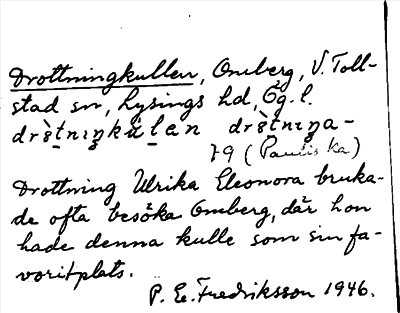 Drottningkullen, Omberg, V. Toll-
stad sn, Lysings hd, Ög. l.
79 (Pauliska)
Drottning Ulrika Eleonora bruka-
de ofta besöka Omberg, där hon
hade denna kulle som sin fa-
voritplats.
P. E. Fredriksson 1946.